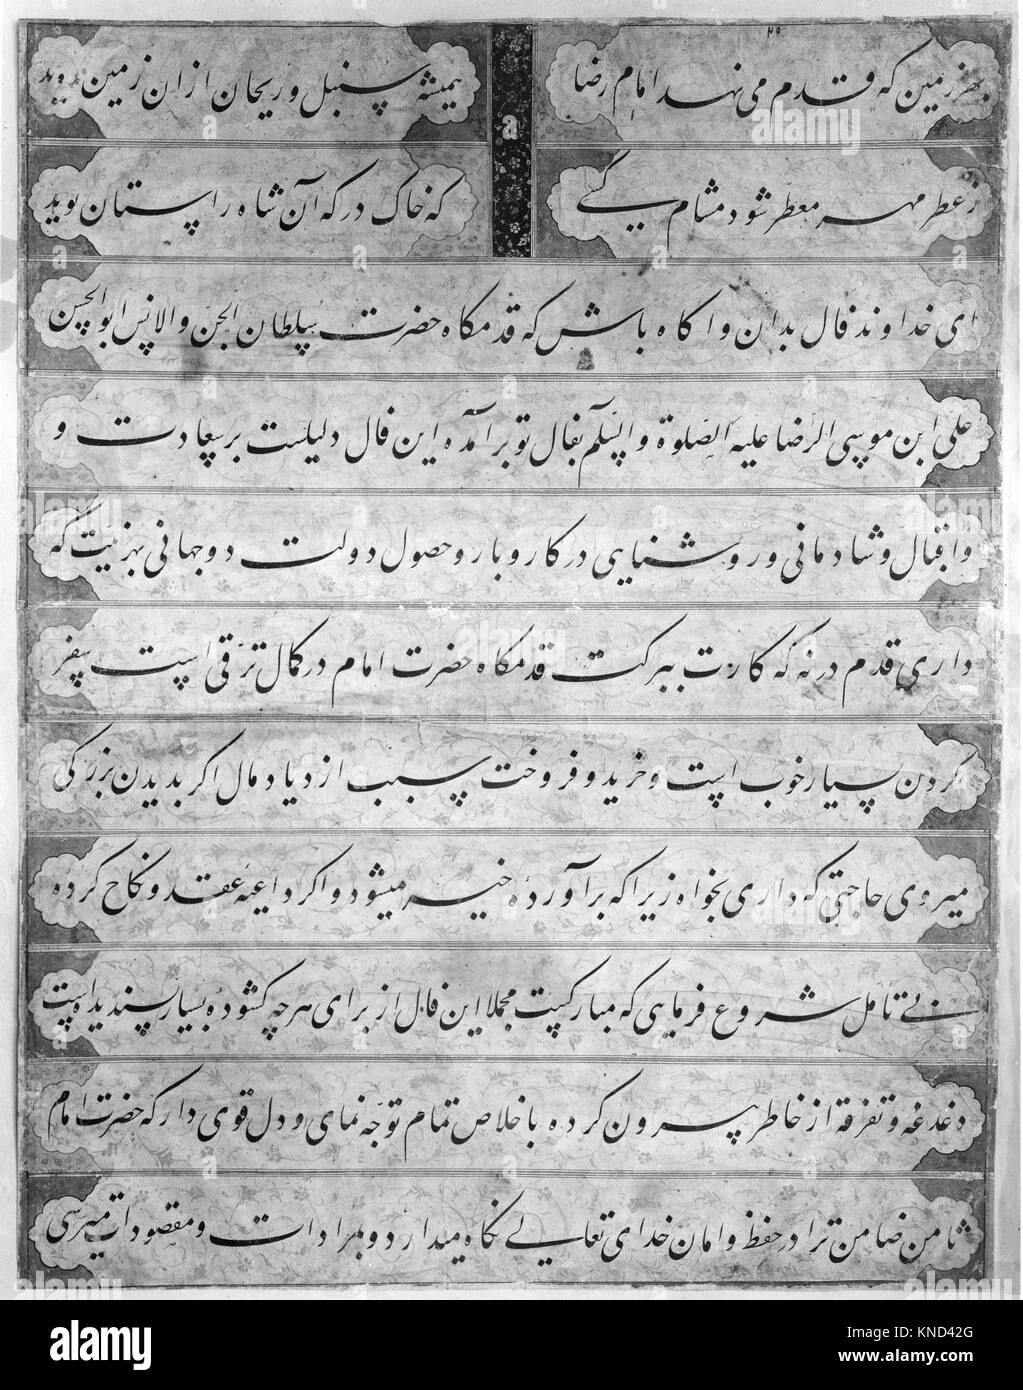 ۲۵
بهر زمین که قدم می نهد امام رضا همیشه سنبل و ریحان ازان زمین روید
ز عطر مهر معطر شود مشام کسی که خاک درکه آن شاه راستان بوید
ای خداوند فال بدان و اکاه باش که قدمکاه حضرت سلطان الجن والانس ابوالحسن
علی ابن موسی الرضا علیه الصلوة والسلم بفال تو برآمده این فال دلیلست بر سعادت و
و اقبال و شادمانی و روشنایی در کار و بار و حصول دولت دو جهانی بهر نیت که
داری قدم درنه که کارت ببرکت قدمکاه حضرت امام در کمال ترقی است سفر
کردن بسیار خوب است و خرید و فروخت سبب ازدیاد مال اکر بدیدن بزرکی
میروی حاجتی که داری بخواه زیرا که برآورده خیر میشود و اکر داعیه عقد و نکاح کرده
بی تامل شروع فرمایی که مبارکست مجملا این فال از برای هرچه کشوده بسیار پسندیده است
دغدغه و تفرقه از خاطر بیرون کرده باخلاص تمام توجه نمای و دل قوی دار که حضرت امام
ثامن ضامن ترا در حفظ و امان خدای تعالی نکاه میدارد و بمرادات و مقصودات میرسی
alamy
Image ID: KND42G
www.alamy.com